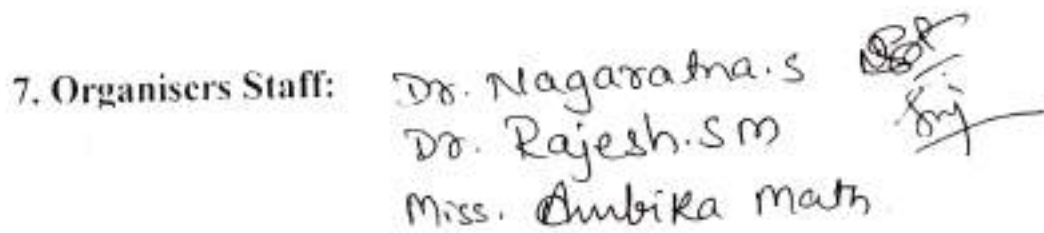 7. Organisers Staff: Dr. Nagaratna.S
Dr. Rajesh.SM
Miss. Ambika Math